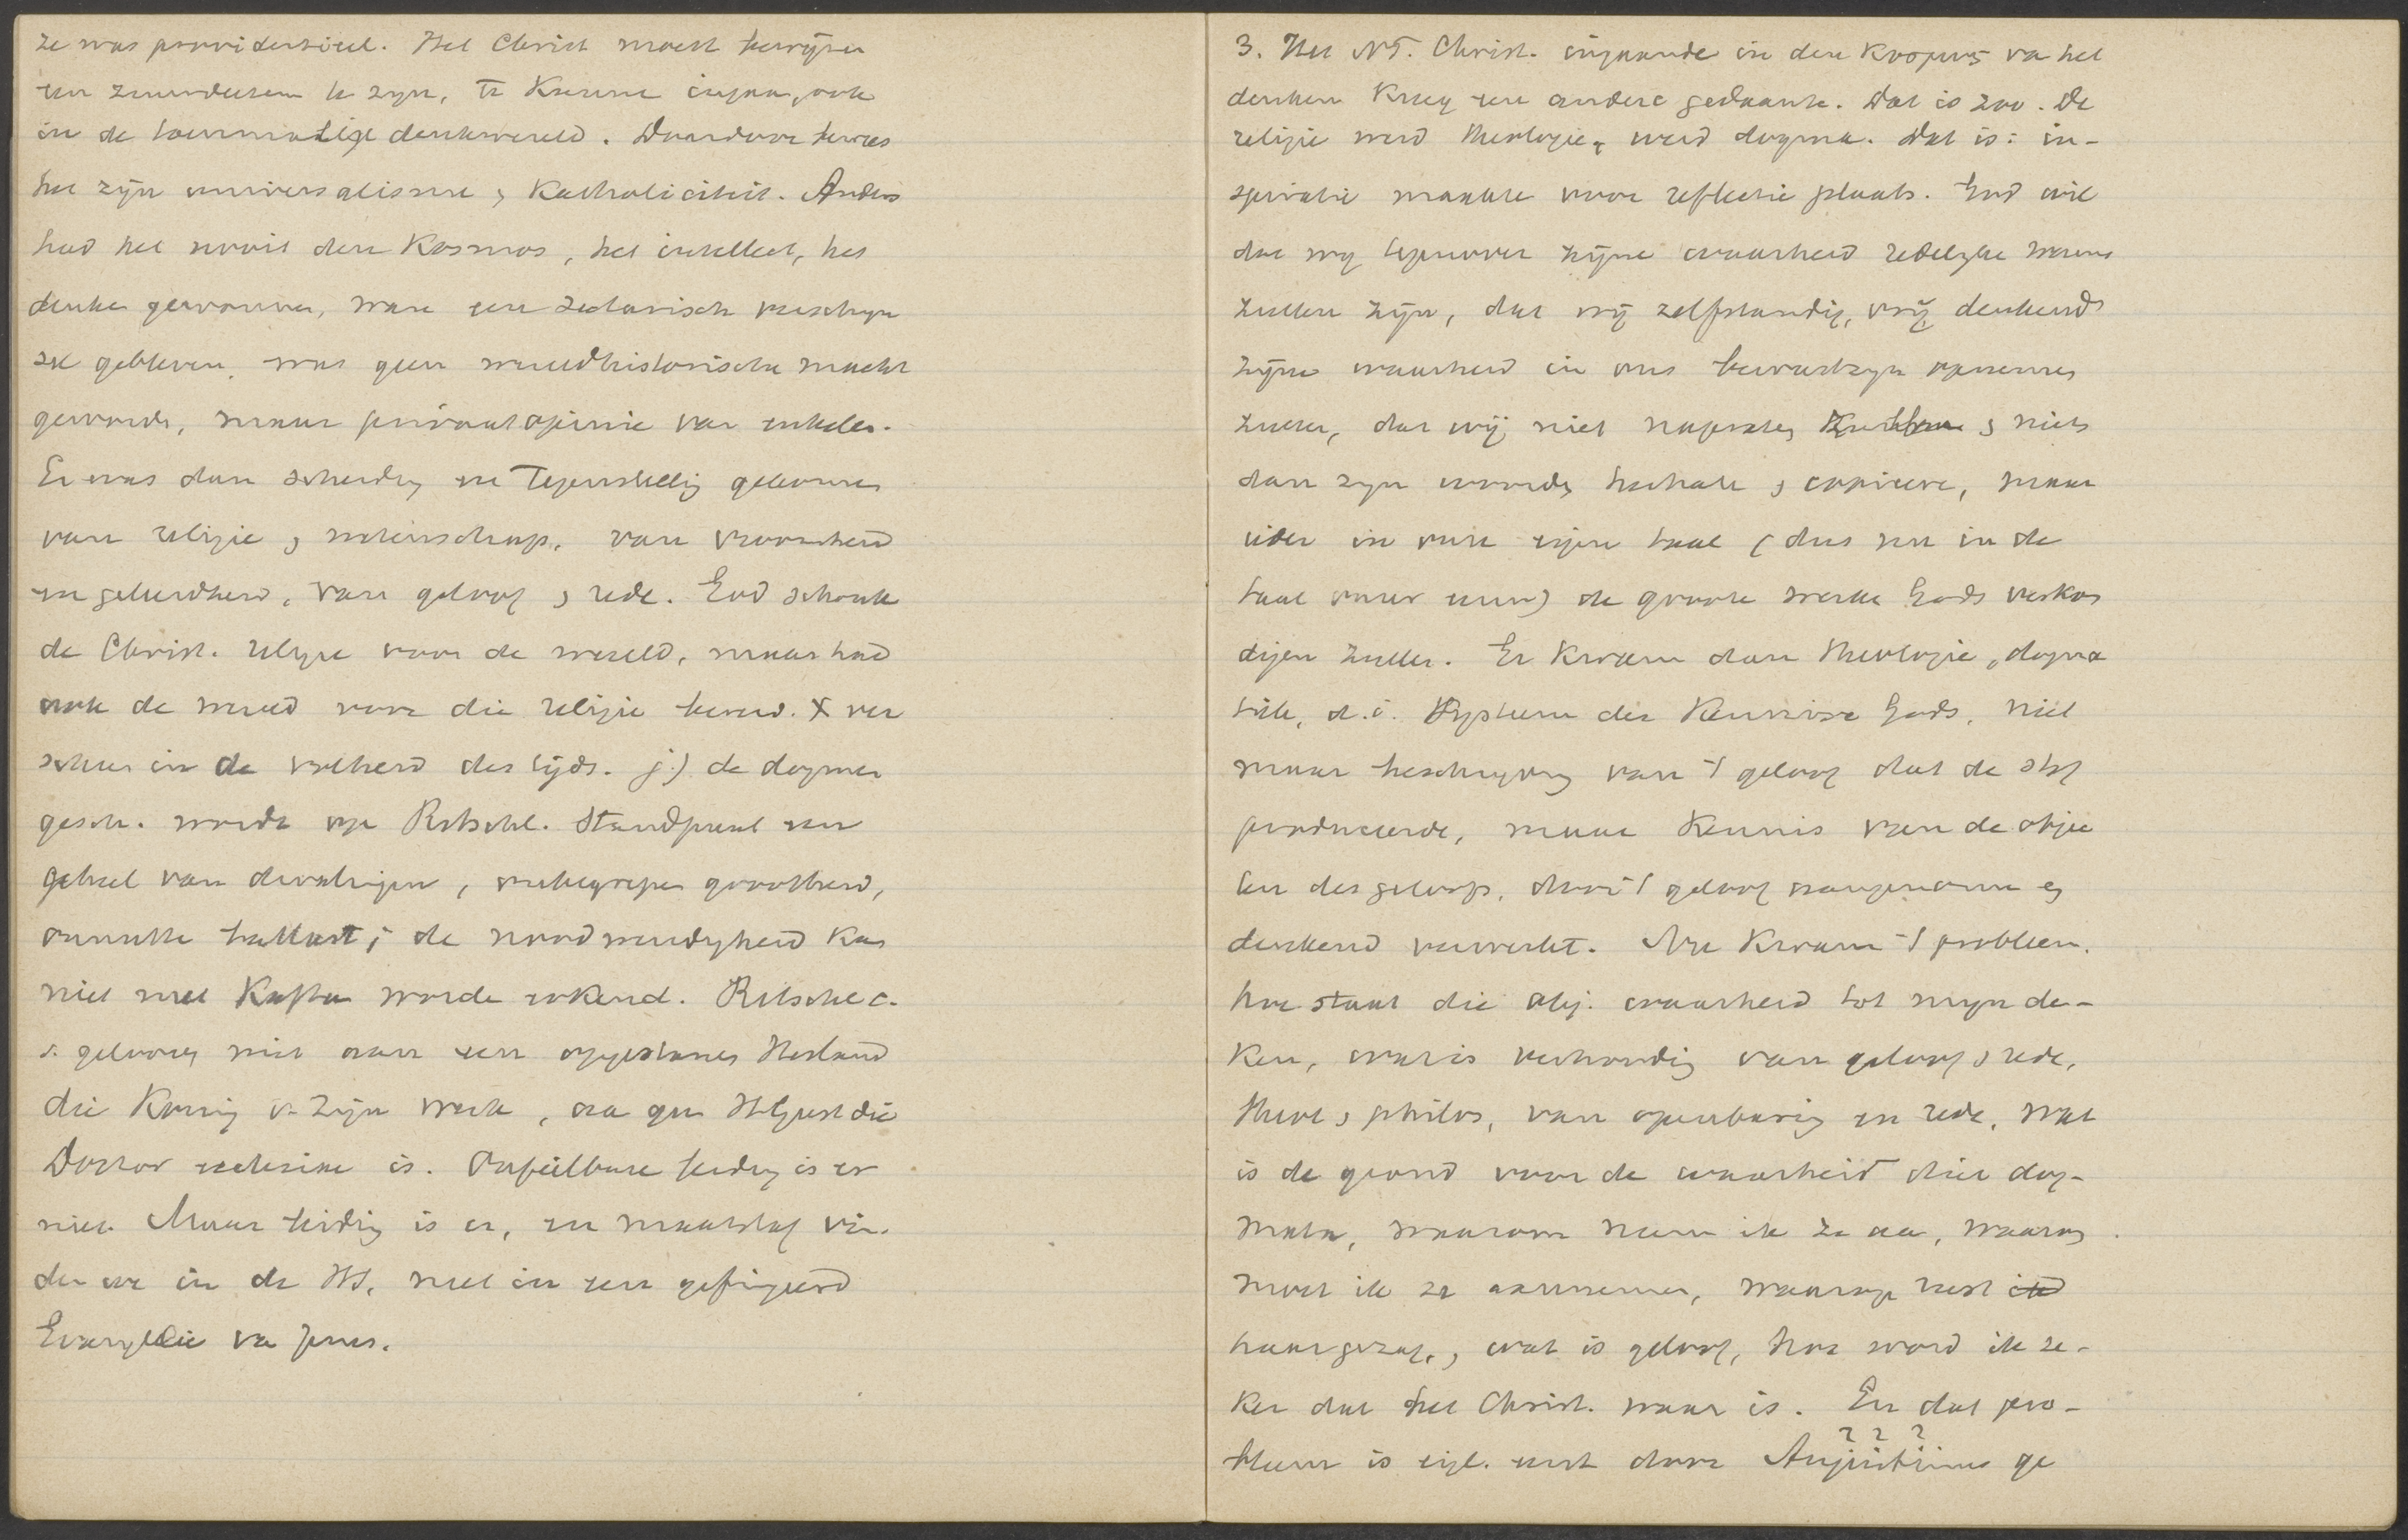 ze was providentieel. Het Christ moest bewijzen
een zuurdeesem te zijn, te kunnen ingaan, ook
in de toenmalige denkwereld. Daardoor bewees
het zijn universalisme, Katholiciteit. Anders
had het nooit den Kosmos, het intellect, het
denken gewonnen, ware een sectarisch verschijn
sel gebleven, was geen wereldhistorische macht
geworden, maar privaatopinie van enkelen.
Er was dan scheiding en Tegenstelling gekomen
van religie, wetenschap, van vroomheid
en geleerdheid, van geloof, rede. God schonk
de Christ. religie voor de wereld, maar had
ook de wereld voor die religie bereid. X ver
scheen in de volheid des tijds. j.) de dogmen
gesch. wordt op Ritschl. Standpunt een
geheel van dwalingen, onbegrepen grootheid,
onnutte ballast; de noodwendigheid kan
niet met Kaftan worden erkend. Ritschl c.
s. gelooven niet aan een opgestanen Heiland
die Koning is v. Zijn Kerk, aan geen H Geest die
Doctor ecclesiae is. Onfeilbare leiding is er
niet. Maar leiding is er, en maatstaf vin-
den we in de HS, niet in een gefingeerd
Evangelie van Jezus.
3. Het NT. Christ. ingaande in den Kosmos van het
denken kreeg een andere gedaante. Dat is zoo. De
religie werd theologie, werd dogma. Dat is: in-
spiratie maakte voor reflectie plaats. God wil
dat wij tegenover zijne waarheid redelijke wezens
zullen zijn, dat wij zelfstandig, vrij denkend
zijne waarheid in ons bewustzijn opnemen
zullen, dat wij niet napraten, niets
dan zijn woorden herhalen, copieeren, maar
ieder in onze eigen taal (dus nu in de
taal onzer eeuw) de groote werken Gods verkon
digen zullen. Er kwam dan theologie, dogma
tiek, d.i. Systeem der Kennisse Gods, niet
maar beschrijving van 't geloof dat de stof
produceerde, maar kennis van de objec
ten des geloofs, door 't geloof aangenomen en
denkend verwerkt. Nu kwam 't probleem.
hoe staat die obj. waarheid tot mijn den-
ken, wat is verhouding van geloof, rede,
theol, philos, van openbaring en rede, wat
is de grond voor de waarheid dier dog-
mata, waarom neem ik ze aan, waarom
moet ik ze aannemen, waarop rust
haar gezag, wat is geloof, hoe word ik ze-
ker dat het Christ. waar is. En dat pro-
? ? ?
bleem is eigl. eerst door Augustinus ge